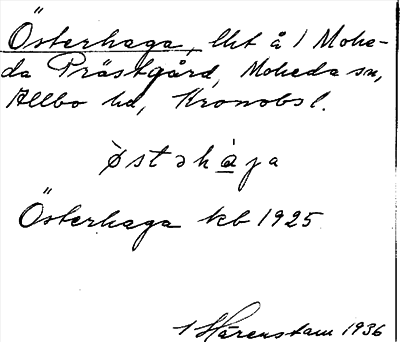 Österhaga, lht å 1 Mohe-
da Prästgård, Moheda sn,
Allbo hd, Kronobs l.
østəhàga
Österhaga kb 1925
1 Härenstam 1936